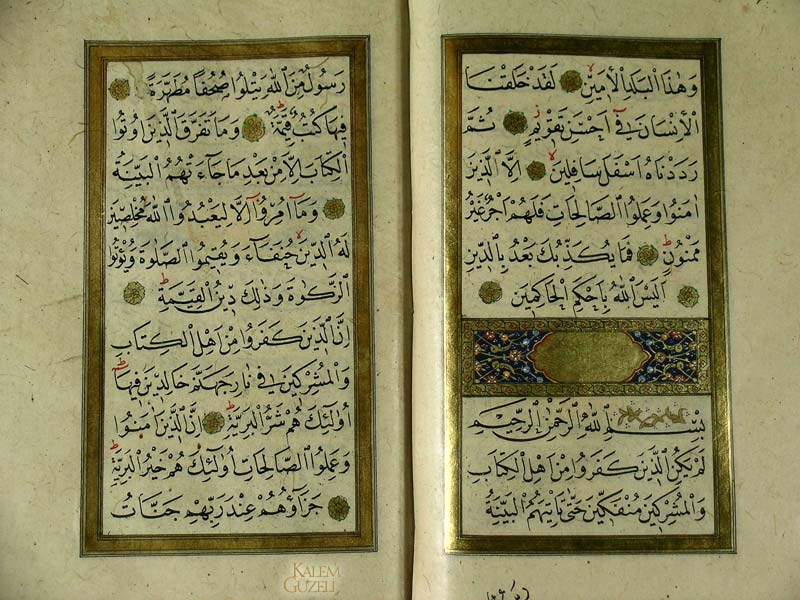 وَهٰذَا الْبَلَدِ الْاَمِينِۙ لَقَدْ خَلَقْنَا
الْاِنْسَانَ فِٓي اَحْسَنِ تَقْوِيمٍۘ ثُمَّ
رَدَدْنَاهُ اَسْفَلَ سَافِلِينَۙ اِلَّا الَّذِينَ
اٰمَنُوا وَعَمِلُوا الصَّالِحَاتِ فَلَهُمْ اَجْرٌ غَيْرُ
مَمْنُونٍۜ فَمَا يُكَذِّبُكَ بَعْدُ بِالدِّينِ
اَلَيْسَ اللّٰهُ بِاَحْكَمِ الْحَاكِمِينَ
بِسْمِ اللّٰهِ الرَّحْمٰنِ الرَّحِيمِ
لَمْ يَكُنِ الَّذِينَ كَفَرُوا مِنْ اَهْلِ الْكِتَابِ
وَالْمُشْرِكِينَ مُنْفَكِّينَ حَتّٰى تَاْتِيَهُمُ الْبَيِّنَةُ
رَسُولٌ مِنَ اللّٰهِ يَتْلُوا صُحُفًا مُطَهَّرَةً
فِيهَا كُتُبٌ قَيِّمَةٌۜ وَمَا تَفَرَّقَ الَّذِينَ اُوتُوا
الْكِتَابَ اِلَّا مِنْ بَعْدِ مَا جَٓاءَتْهُمُ الْبَيِّنَةُ
وَمَٓا اُمِرُٓوا اِلَّا لِيَعْبُدُوا اللّٰهَ مُخْلِصِينَ
لَهُ الدِّينَ حُنَفَٓاءَ وَيُقِيمُوا الصَّلٰوةَ وَيُؤْتُوا
الزَّكٰوةَ وَذٰلِكَ دِينُ الْقَيِّمَةِۜ
اِنَّ الَّذِينَ كَفَرُوا مِنْ اَهْلِ الْكِتَابِ
وَالْمُشْرِكِينَ فِي نَارِ جَهَنَّمَ خَالِدِينَ فِيهَاۜ
اُو۬لٰٓئِكَ هُمْ شَرُّ الْبَرِيَّةِۜ اِنَّ الَّذِينَ اٰمَنُوا
وَعَمِلُوا الصَّالِحَاتِ اُو۬لٰٓئِكَ هُمْ خَيْرُ الْبَرِيَّةِۜ
جَزَٓاؤُ۬هُمْ عِنْدَ رَبِّهِمْ جَنَّاتُ
KALEM
GÜZELİ